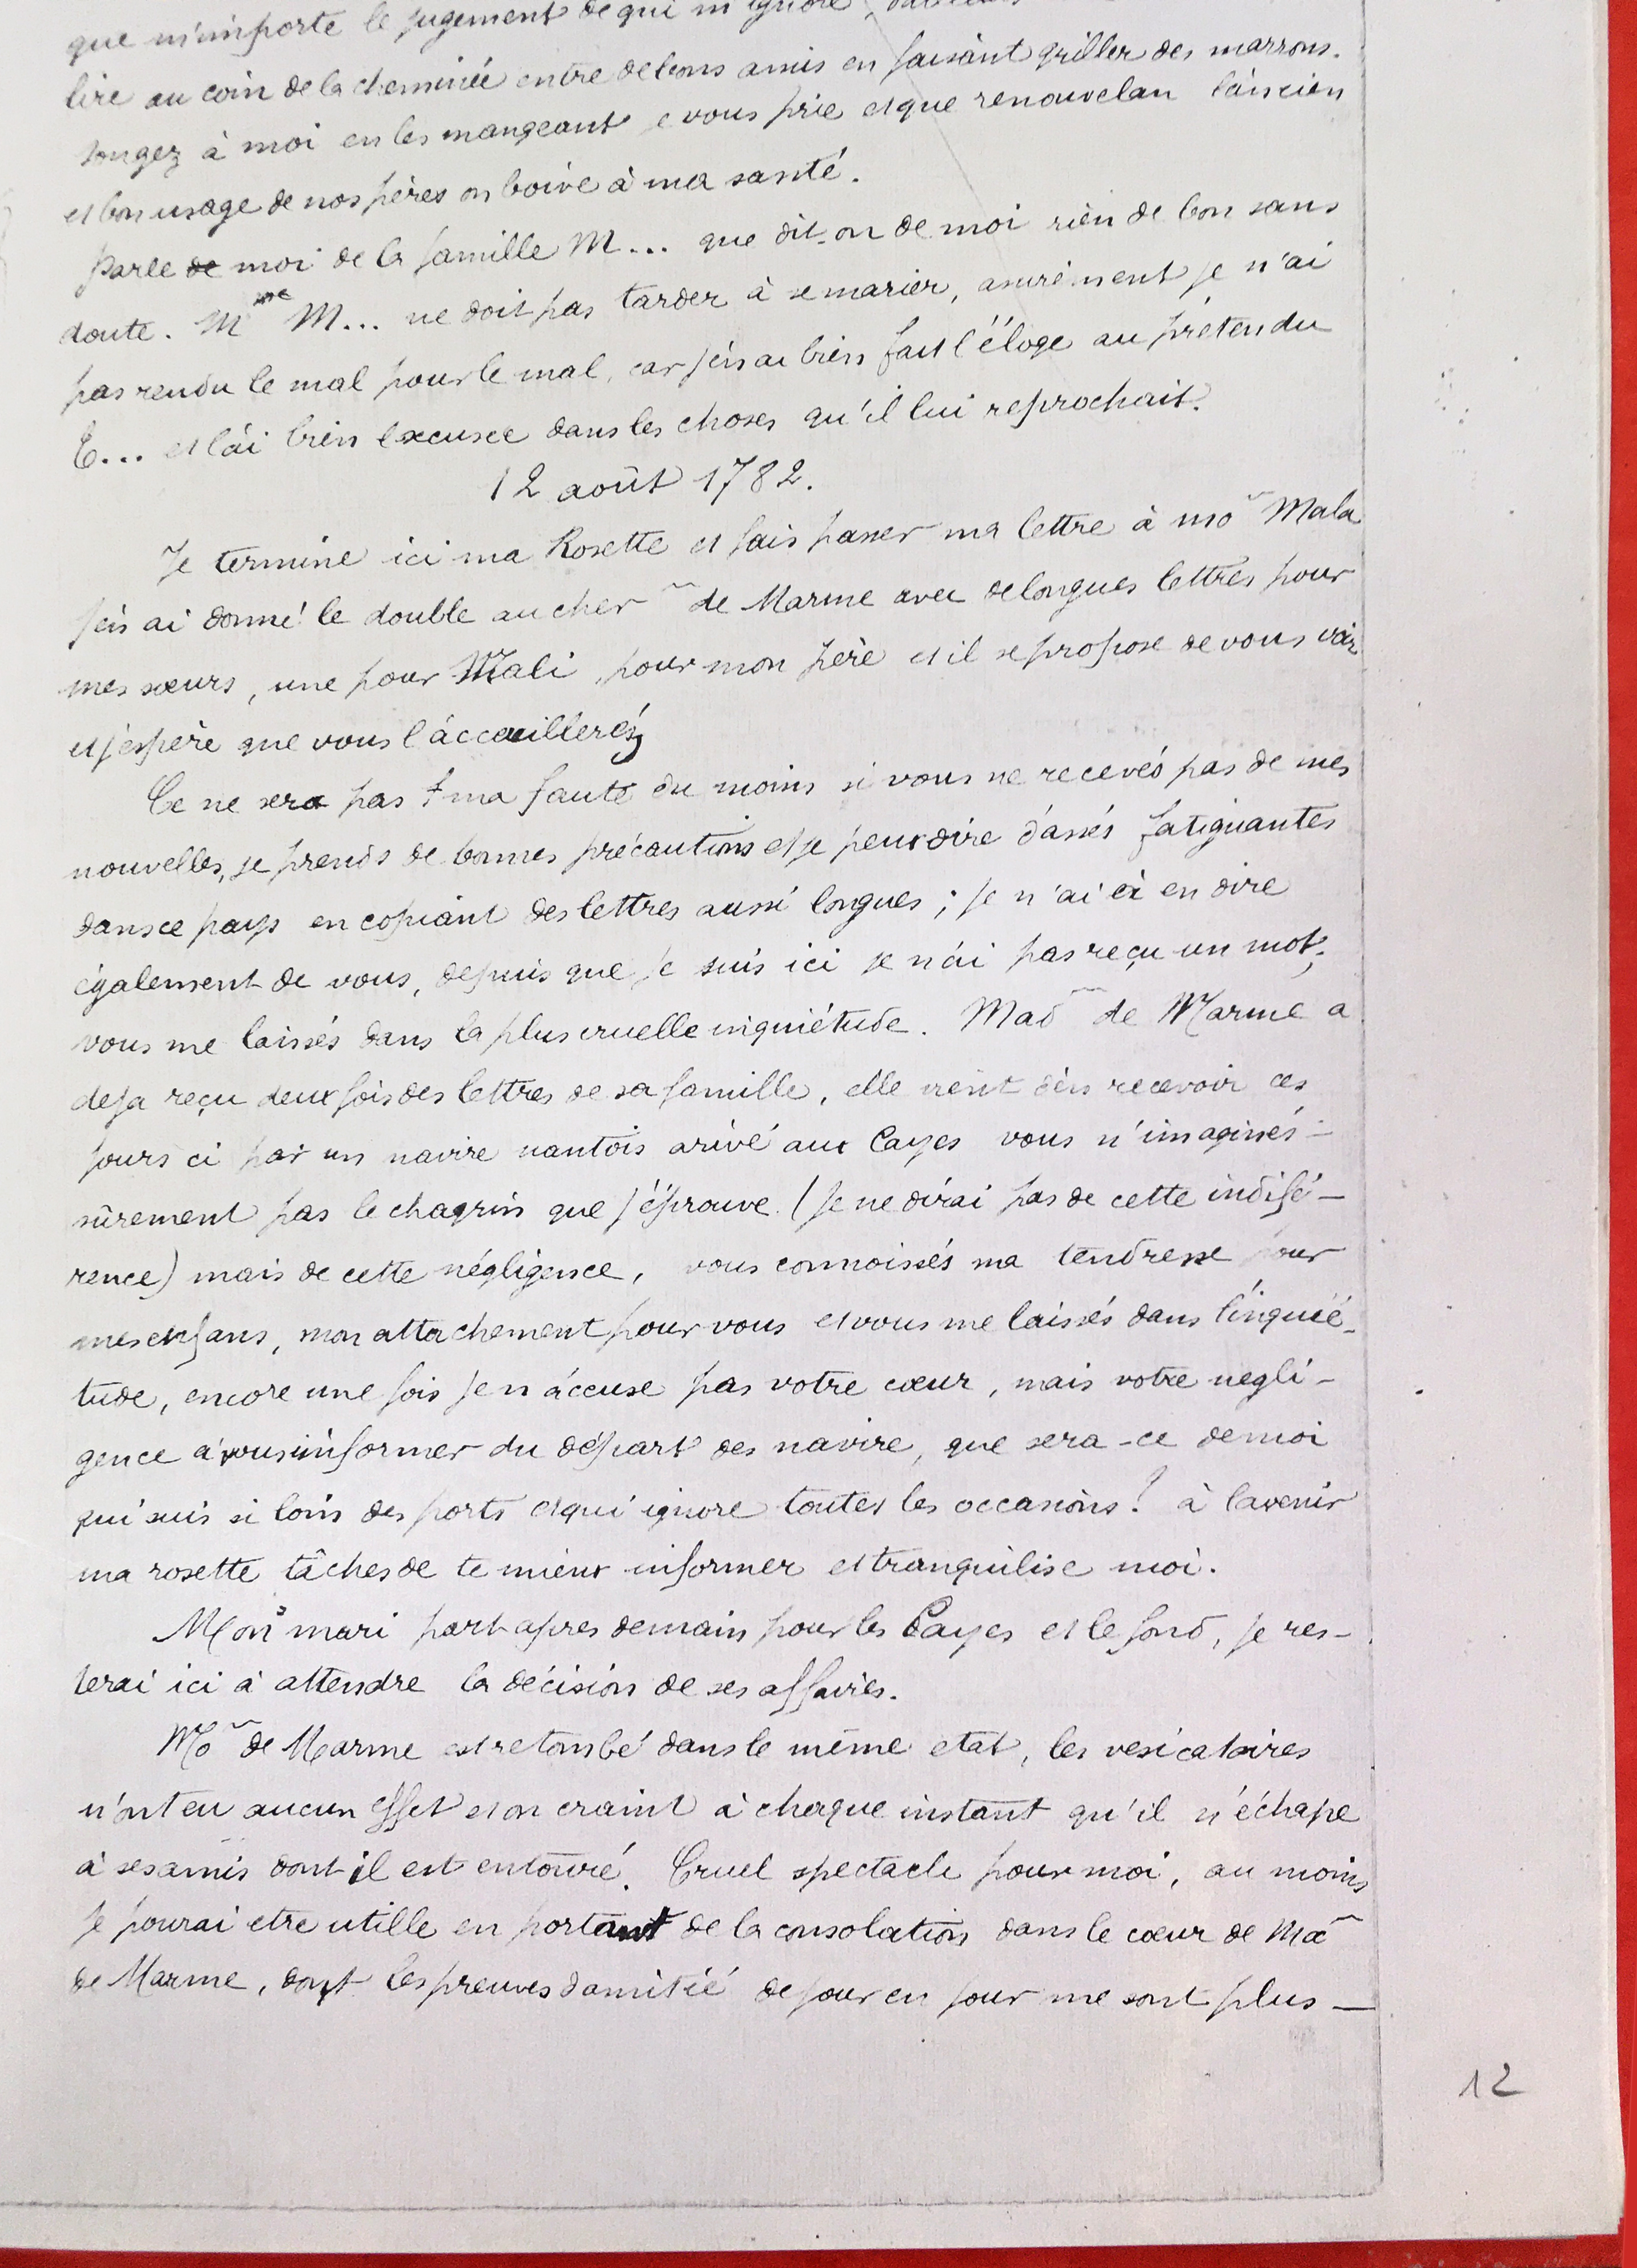 que m'importe le jugement de qui m'ignore,
lire au coin de la cheminée entre de bons amis en faisant griller des marrons.
songez à moi en les mangeant je vous prie et que renouvelan l'ancien
et bon usage de nos pères on boive à ma santé.
parle de moi de la famille M... que dit-on de moi rien de bon sans
doute. Mme M... ne doit pas tarder à se marier, assurément je n'ai
pas rendu le mal pour le mal, car j'en ai bien fait l'éloge au prétendu
E... et l'ai bien excusée dans les choses qu'il lui reprochait.
12 août 1782.
Je termine ici ma Rosette et fais passer ma lettre à mo~ Mala
j'en ai donné le double au cher~ de Marme avec de longues lettres pour
mes sœurs, une pour Mali, pour mon père et il se propose de vous voir
et j'espère que vous l'accueillerés
Ce ne sera pas ma faute du moins si vous ne recevés pas de mes
nouvelles, je prends de bonnes précautions et je peux dire d'assés fatiguantes
dans ce pays en copiant des lettres aussi longues; je n'ai à en dire
également de vous, depuis que je suis ici je n'ai pas reçu un mot;
vous me laissés dans la plus cruelle inquiétude. Mad~ de Marme a
deja reçu deux fois des lettres de sa famille, elle vient d'en recevoir ces
jours ci par un navire nantois arivé aux Cayes vous n'imaginés-
sûrement pas le chagrin que j'éprouve (je ne dirai pas de cette indifé-
rence) mais de cette négligence, vous connoissés ma tendresse pour
mes enfans, mon attachement pour vous et vous me laissés dans l'inquié-
tude, encore une fois je n'accuse pas votre cœur, mais votre negli-
gence à vous informer du départ des navire, que sera-ce de moi
qui suis si loin des ports et qui ignore toutes les occasions! à l'avenir
ma rosette tâches de te mieux informer et tranquilise moi.
Mon mari part apres demain pour les Cayes et le fond, je res-
terai ici à attendre la décision de ses affaires.
Mo~ de Marme est retombé dans le même etat, les vesicatoires
n'ont eu aucun effet et on craint à chaque instant qu'il n'échape
à ses amis dont il est entouré. Cruel spectacle pour moi, au moins
je pourai etre utille en portant de la consolation dans le cœur de Ma~
de Marme, dont les preuves d'amitié de jour en jour me sont plus —
12